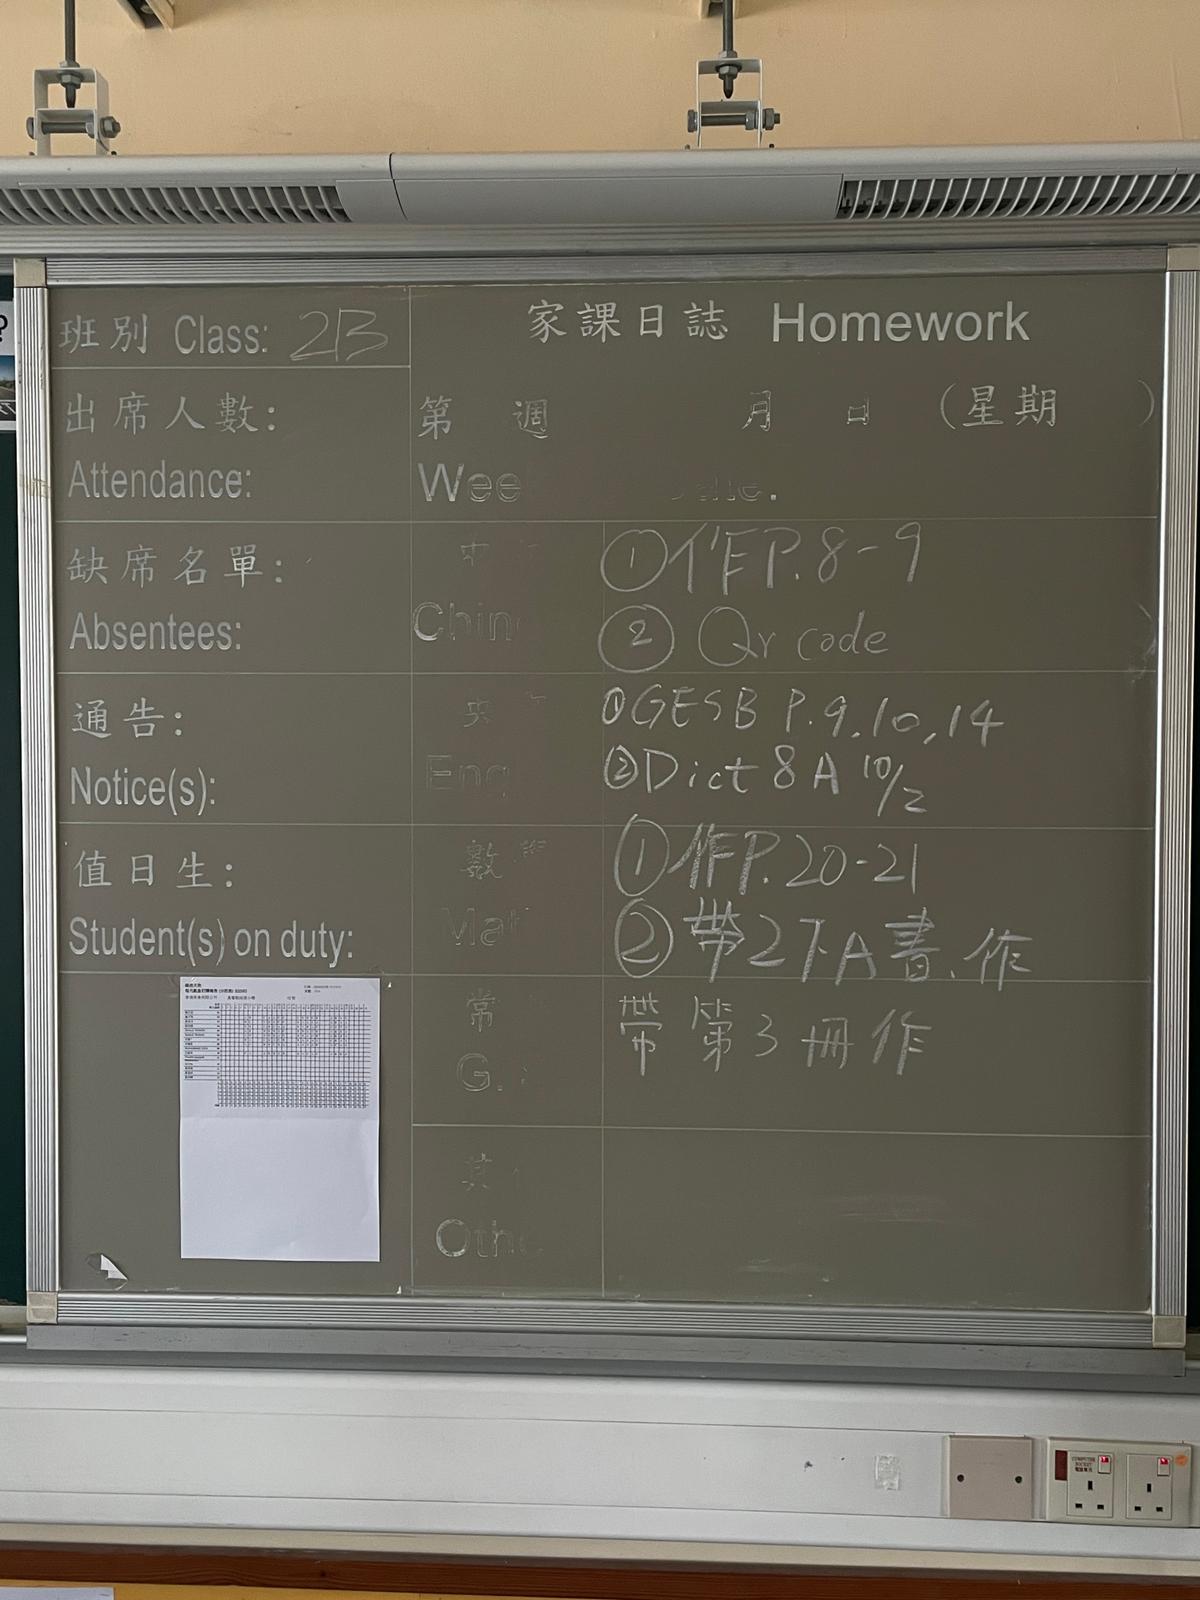 班別 Class: 2B
家課日誌 Homework
出席人數:
Attendance:
第 週 月 日 (星期 )
Wee
缺席名單:
Absentees:
中
Chin
①作P.8-9
② Qr code
通告:
Notice(s):
Eng
①GESB P.9,10,14
②Dict 8A 10/2
值日生:
Student(s) on duty:
數
Mat
①作P.20-21
②帶2下A書、作
常
G.
帶第3冊作
其
Othe
COMPUTER
SOCKET